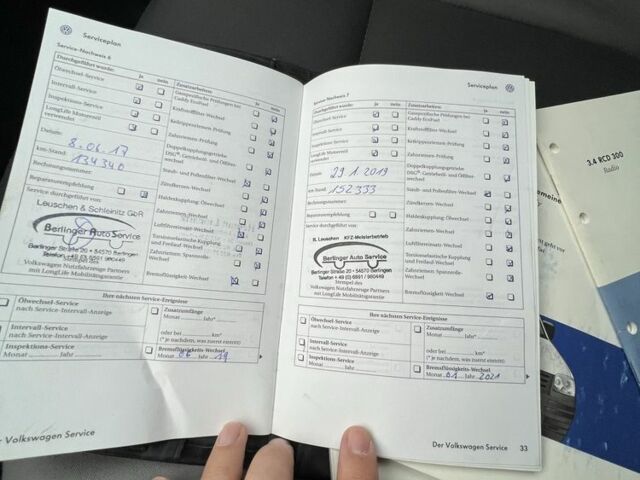 Serviceplan
Service-Nachweis 6
Durchgeführt wurde: ja nein
Ölwechsel-Service
Intervall-Service
Inspektions-Service
LongLife Motorenöl
verwendet
Datum:
8.06.17
km-Stand:
134340
Rechnungsnummer:
Reparaturempfehlung
Service durchgeführt von:
Leuschen & Schleinitz GbR
Berlinger Auto Service
Berlinger Straße 20 • 54570 Berlingen
Telefon + 49 (0) 6591 / 980449
Stempel des
Volkswagen Nutzfahrzeuge Partners
mit LongLife Mobilitätsgarantie
Zusatzarbeiten: ja nein
Gasspezifische Prüfungen bei
Caddy EcoFuel
Kraftstofffilter-Wechsel
Keilrippenriemen-Prüfung
Zahnriemen-Prüfung
Doppelkupplungsgetriebe
DSG®, Getriebeöl- und Ölfilter-
wechsel
Staub- und Pollenfilter-Wechsel
Zündkerzen-Wechsel
Haldexkupplung: Ölwechsel
Zahnriemen-Wechsel
Luftfiltereinsatz-Wechsel
Torsionselastische Kupplung
und Freilauf-Wechsel
Zahnriemen- Spannrolle-
Wechsel
Bremsflüssigkeits-Wechsel
Ihre nächsten Service-Ereignisse
Ölwechsel-Service
nach Service-Intervall-Anzeige
Intervall-Service
nach Service-Intervall-Anzeige
Inspektions-Service
Monat Jahr
Zusatzumfänge
Monat Jahr*
oder bei km*
(* je nachdem, was zuerst eintritt)
Bremsflüssigkeits-Wechsel
Monat 06 Jahr 19
Volkswagen Service
Serviceplan
Service-Nachweis 7
Durchgeführt wurde: ja nein
Ölwechsel-Service
Intervall-Service
Inspektions-Service
LongLife Motorenöl
verwendet
Datum:
29.1.2019
km-Stand:
152333
Rechnungsnummer:
Reparaturempfehlung
Service durchgeführt von:
R. Leuschen KFZ-Meisterbetrieb
Berlinger Auto Service
Berlinger Straße 20 • 54570 Berlingen
Telefon + 49 (0) 6591 / 980449
Stempel des
Volkswagen Nutzfahrzeuge Partners
mit LongLife Mobilitätsgarantie
Zusatzarbeiten: ja nein
Gasspezifische Prüfungen bei
Caddy EcoFuel
Kraftstofffilter-Wechsel
Keilrippenriemen-Prüfung
Zahnriemen-Prüfung
Doppelkupplungsgetriebe
DSG®, Getriebeöl- und Ölfilter-
wechsel
Staub- und Pollenfilter-Wechsel
Zündkerzen-Wechsel
Haldexkupplung: Ölwechsel
Zahnriemen-Wechsel
Luftfiltereinsatz-Wechsel
Torsionselastische Kupplung
und Freilauf-Wechsel
Zahnriemen- Spannrolle-
Wechsel
Bremsflüssigkeits-Wechsel
Ihre nächsten Service-Ereignisse
Ölwechsel-Service
nach Service-Intervall-Anzeige
Intervall-Service
nach Service-Intervall-Anzeige
Inspektions-Service
Monat Jahr
Zusatzumfänge
Monat Jahr*
oder bei km*
(* je nachdem, was zuerst eintritt)
Bremsflüssigkeits-Wechsel
Monat 01 Jahr 2021
Der Volkswagen Service 33
3.4 RCD 300
Radio